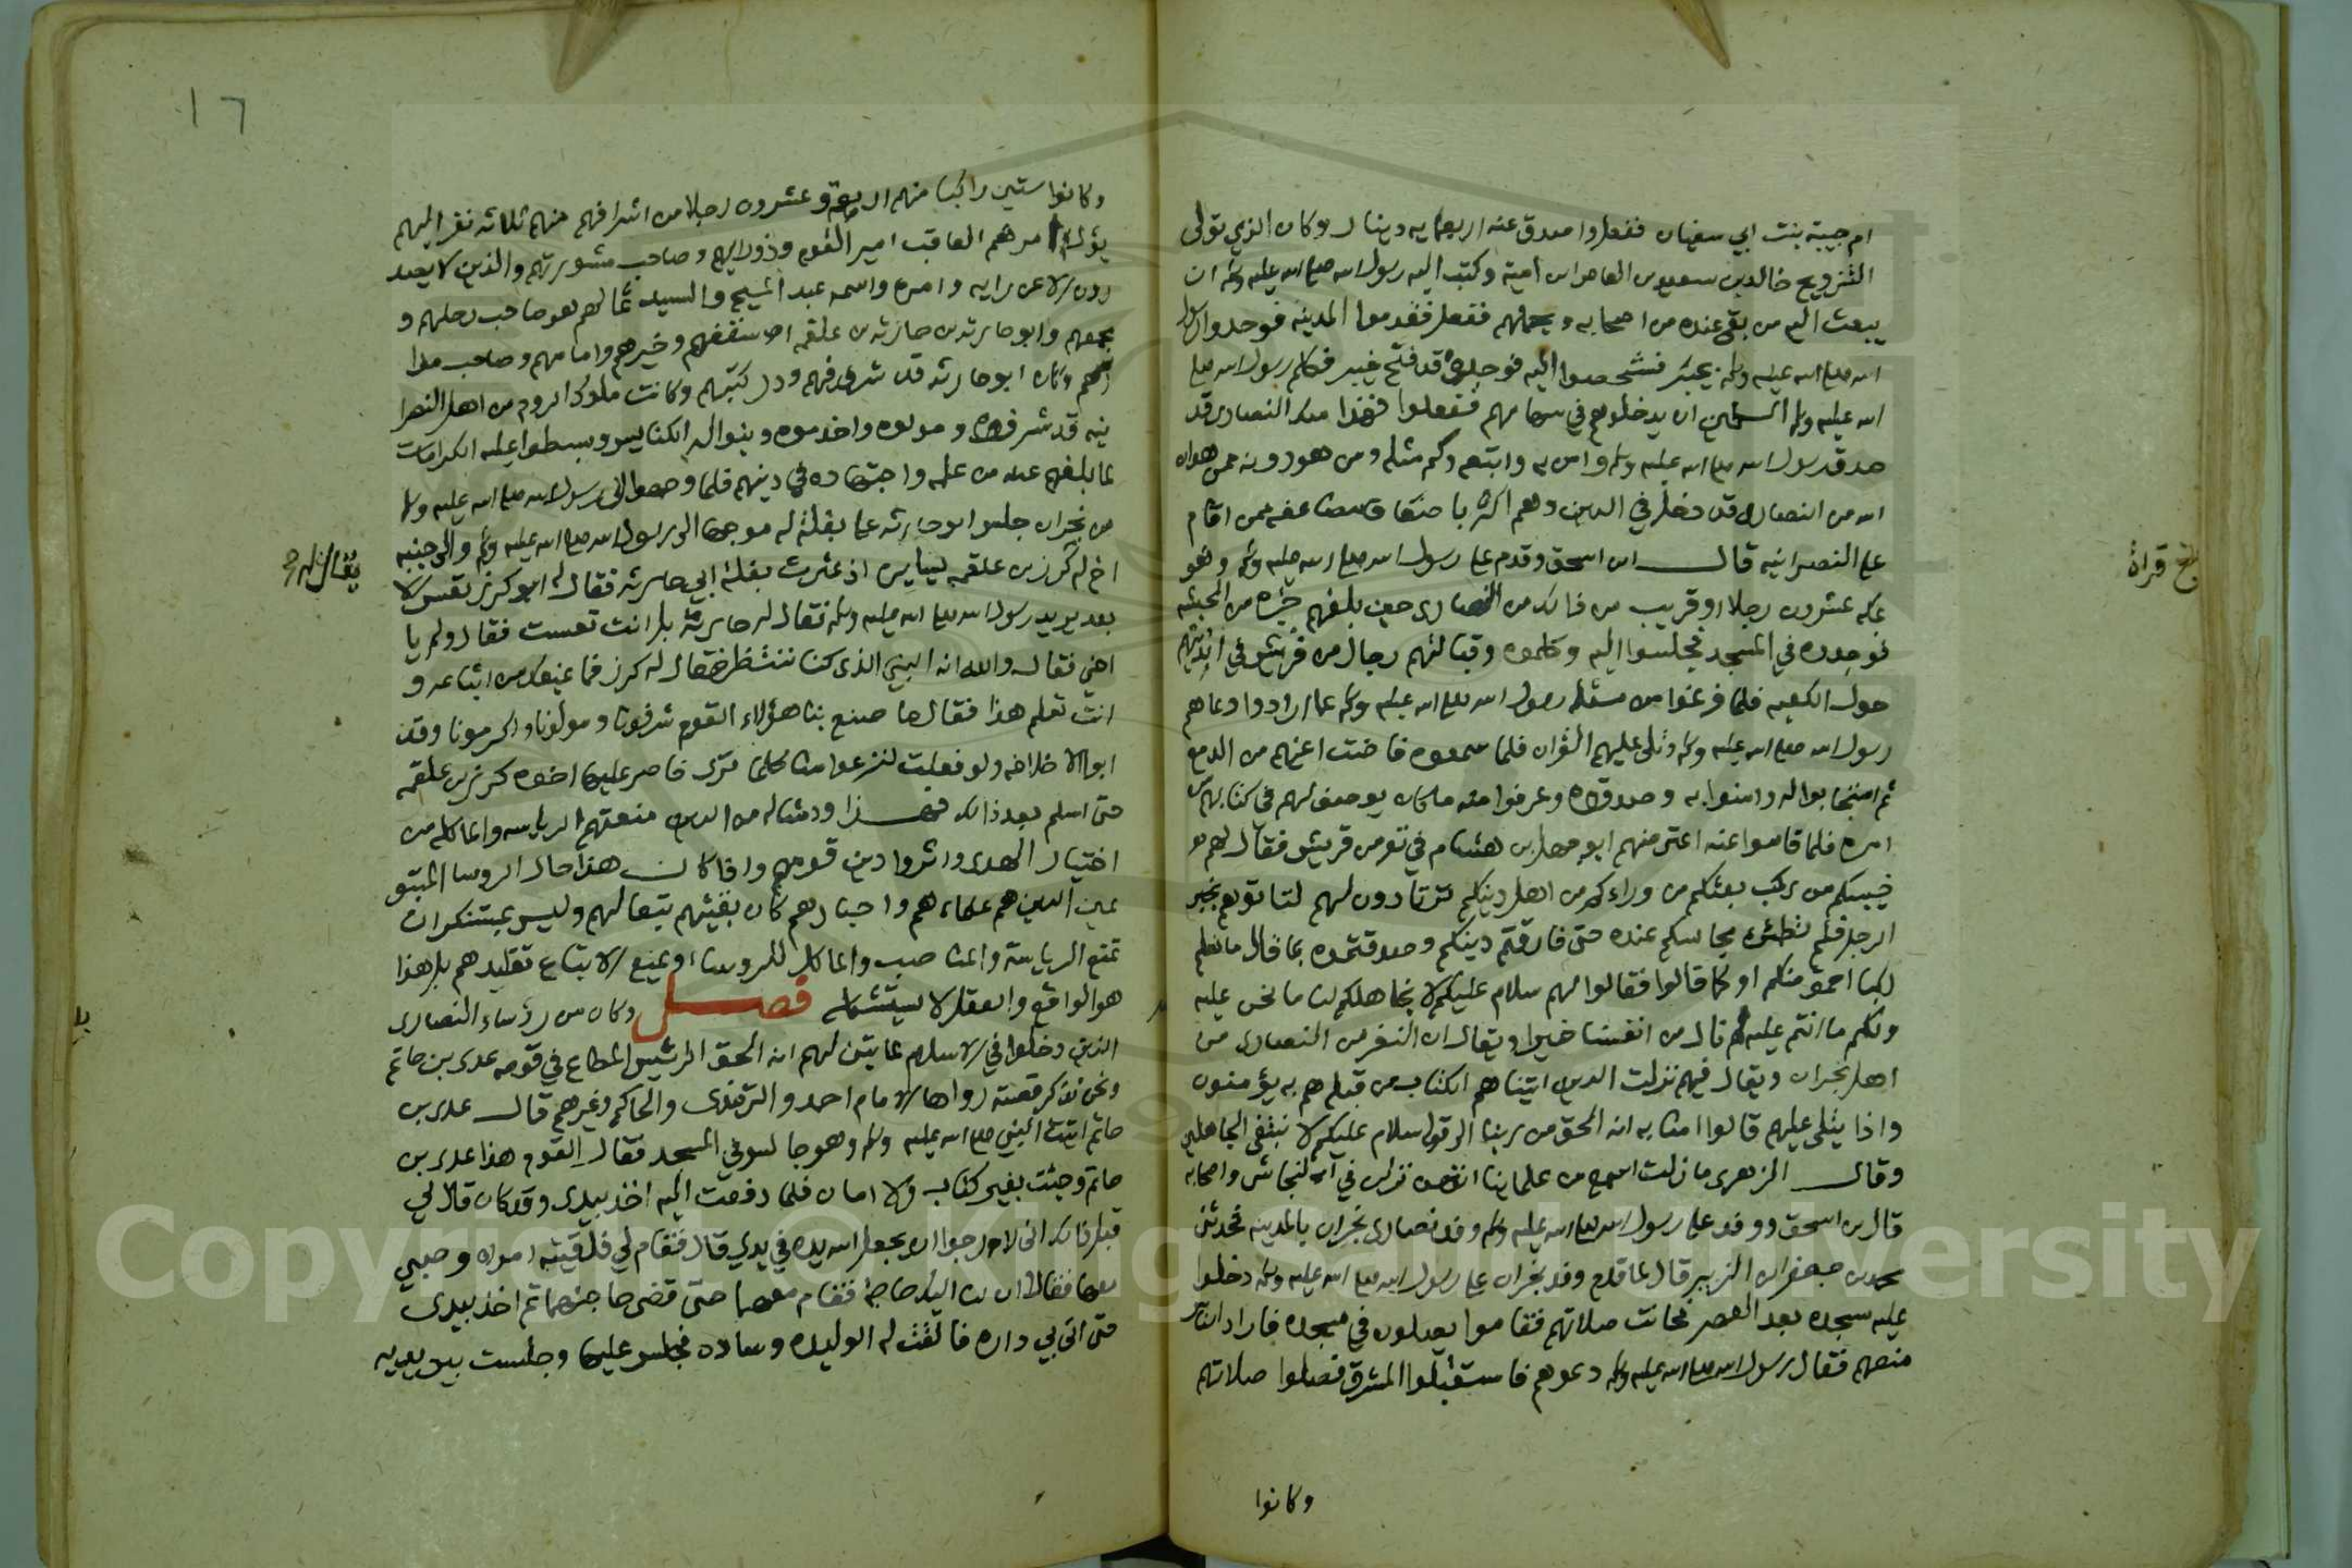 ام حبيبة بنت ابي سفيان ففعلوا واصدق عنه اربعمايه دينار وكان الذي تولى
التزويج خالد بن سعيد بن العاص بن امية وكتب اليه رسول الله صلى الله عليه وسلم ان
يبعث اليه من بقي عنده من اصحابه ويحملهم ففعل فقدموا المدينه فوجدوا رسول
الله صلى الله عليه وسلم بخيبر فشخصوا اليه فوجدوه قد فتح خيبر فكلم رسول الله صلى
الله عليه وسلم المسلمين ان يدخلوهم في سهامهم ففعلوا فهذا ملك النصارى قد
صدق رسول الله صلى الله عليه وسلم وامن به واتبعه وكم مثله ومن هو دونه ممن هداه
الله من النصارى قد دخل في الدين وهم اكثر باضعاف مضاعفه ممن اقام
على النصرانيه قال ابن اسحق وقدم على رسول الله صلى الله عليه وسلم وهو
بمكه عشرون رجلا او قريب من ذالك من النصارى حين بلغهم خبره من الحبشه
فوجدوه في المسجد فجلسوا اليه وكلموه وقبالتهم رجال من قريش في انديتهم
حول الكعبه فلما فرغوا من مسئلة رسول الله صلى الله عليه وسلم عما ارادوا دعاهم
رسول الله صلى الله عليه وسلم وتلى عليهم القران فلما سمعوه فاضت اعينهم من الدمع
ثم استجابوا له وامنوا به وصدقوه وعرفوا منه ما كان يوصف لهم في كتابهم من
امره فلما قاموا عنه اعترضهم ابو جهل بن هشام في نفر من قريش فقال لهم
خيبكم من ركب بعثكم من وراءكم من اهل دينكم ترتادون لهم لتاتوهم بخبر
الرجل فلم تطمئن مجالسكم عنده حتى فارقتم دينكم وصدقتموه بما قال ما نعلم
ركبا احمق منكم او كما قالوا فقالوا لهم سلام عليكم لا نجاهلكم لنا ما نحن عليه
ولكم ما انتم عليه لم نال من انفسنا خيرا ويقال ان النفر من النصارى من
اهل نجران ويقال فيهم نزلت الذين اتيناهم الكتاب من قبله هم به يؤمنون
واذا يتلى عليهم قالوا امنا به انه الحق من ربنا الى قوله سلام عليكم لا نبتغي الجاهلين
وقال الزهرى ما زلت اسمع من علماينا انهن نزلن في النجاشى واصحابه
قال بن اسحق ووفد على رسول الله صلى الله عليه وسلم وفد نصارى نجران بالمدينه فحدثنى
محمد بن جعفر بن الزبير قال لما قدم وفد نجران على رسول الله صلى الله عليه وسلم دخلوا
عليه مسجده بعد العصر فحانت صلاتهم فقاموا يصلون في مسجده فاراد الناس
منعهم فقال رسول الله صلى الله عليه وسلم دعوهم فاستقبلوا المشرق فصلوا صلاتهم
وكانوا
قراة
١٦
وكانوا ستين راكبا منهم اربعة وعشرون رجلا من اشرافهم منهم ثلاثه نفر اليهم
يؤل امرهم العاقب امير القوم وذو رايهم وصاحب مشورتهم والذين لا يصد
رون الا عن رايه وامره واسمه عبد المسيح والسيد ثمالهم وصاحب رحلهم و
مجمعهم وابو حارثه بن علقمه اسقفهم وخيرهم وامامهم وصاحب مدا
رسهم وكان ابو حارثه قد شرف فيهم ودرس كتبهم وكانت ملوك الروم من اهل النصرا
نيه قد شرفوه ومولوه واخدموه وبنوا له الكنايس وبسطوا عليه الكرامات
لما بلغهم عنه من علمه واجتهاده في دينهم فلما وجهوا الى رسول الله صلى الله عليه وسلم
من نجران جلس ابو حارثه على بغلة له موجها الى رسول الله صلى الله عليه وسلم والى جنبه
اخ له كرز بن علقمه يسايره اذ عثرت بغلة ابي حارثه فقال له كرز تعس الا
بعد يريد رسول الله صلى الله عليه وسلم فقال له حارثه بل انت تعست فقال ولم يا
اخي فقال والله انه النبي الذى كنا ننتظر فقال له كرز فما يمنعك من اتباعه و
انت تعلم هذا فقال ما صنع بنا هؤلاء القوم شرفونا ومولونا واكرمونا وقد
ابوا الا خلافه ولو فعلت لنزعوا منا كلما ترى فاصر عليها اخوه كرز بن علقمه
حتى اسلم بعد ذالك فهذا وامثاله من الذين منعتهم الرياسه والماكله من
اختيار الهدى واثروا دين قومهم واذا كان هذا حال الروسا المتبو
عين الذين هم علماءهم واحبارهم كان بقيتهم تبعا لهم وليس بمستنكر ان
تمنع الرياسة والمناصب والماكل للروساء ويمنع الاتباع تقليدهم بل هذا
هو الواقع والعقل لا يستشكله فصل وكان من رؤساء النصارى
الذين دخلوا في الاسلام لما تبين لهم انه الحق الرئيس المطاع في قومه عدى بن حاتم
ونحن نذكر قصته رواها الامام احمد والترمذى والحاكم وغيرهم قال عدى بن
حاتم اتيت النبي صلى الله عليه وسلم وهو جالس في المسجد فقال القوم هذا عدى بن
حاتم وجئت بغير كتاب ولا امان فلما دفعت اليه اخذ بيدى وقد كان قال لي
قبل ذالك اني لارجوا ان يجعل الله يده في يدي قال فقام لي فلقيته امراه وصبي
معها فقالا ان لنا اليك حاجة فقام معهما حتى قضى حاجتهما ثم اخذ بيدى
حتى اتى بي داره فالقت له الوليده وساده فجلس عليها وجلست بين يديه